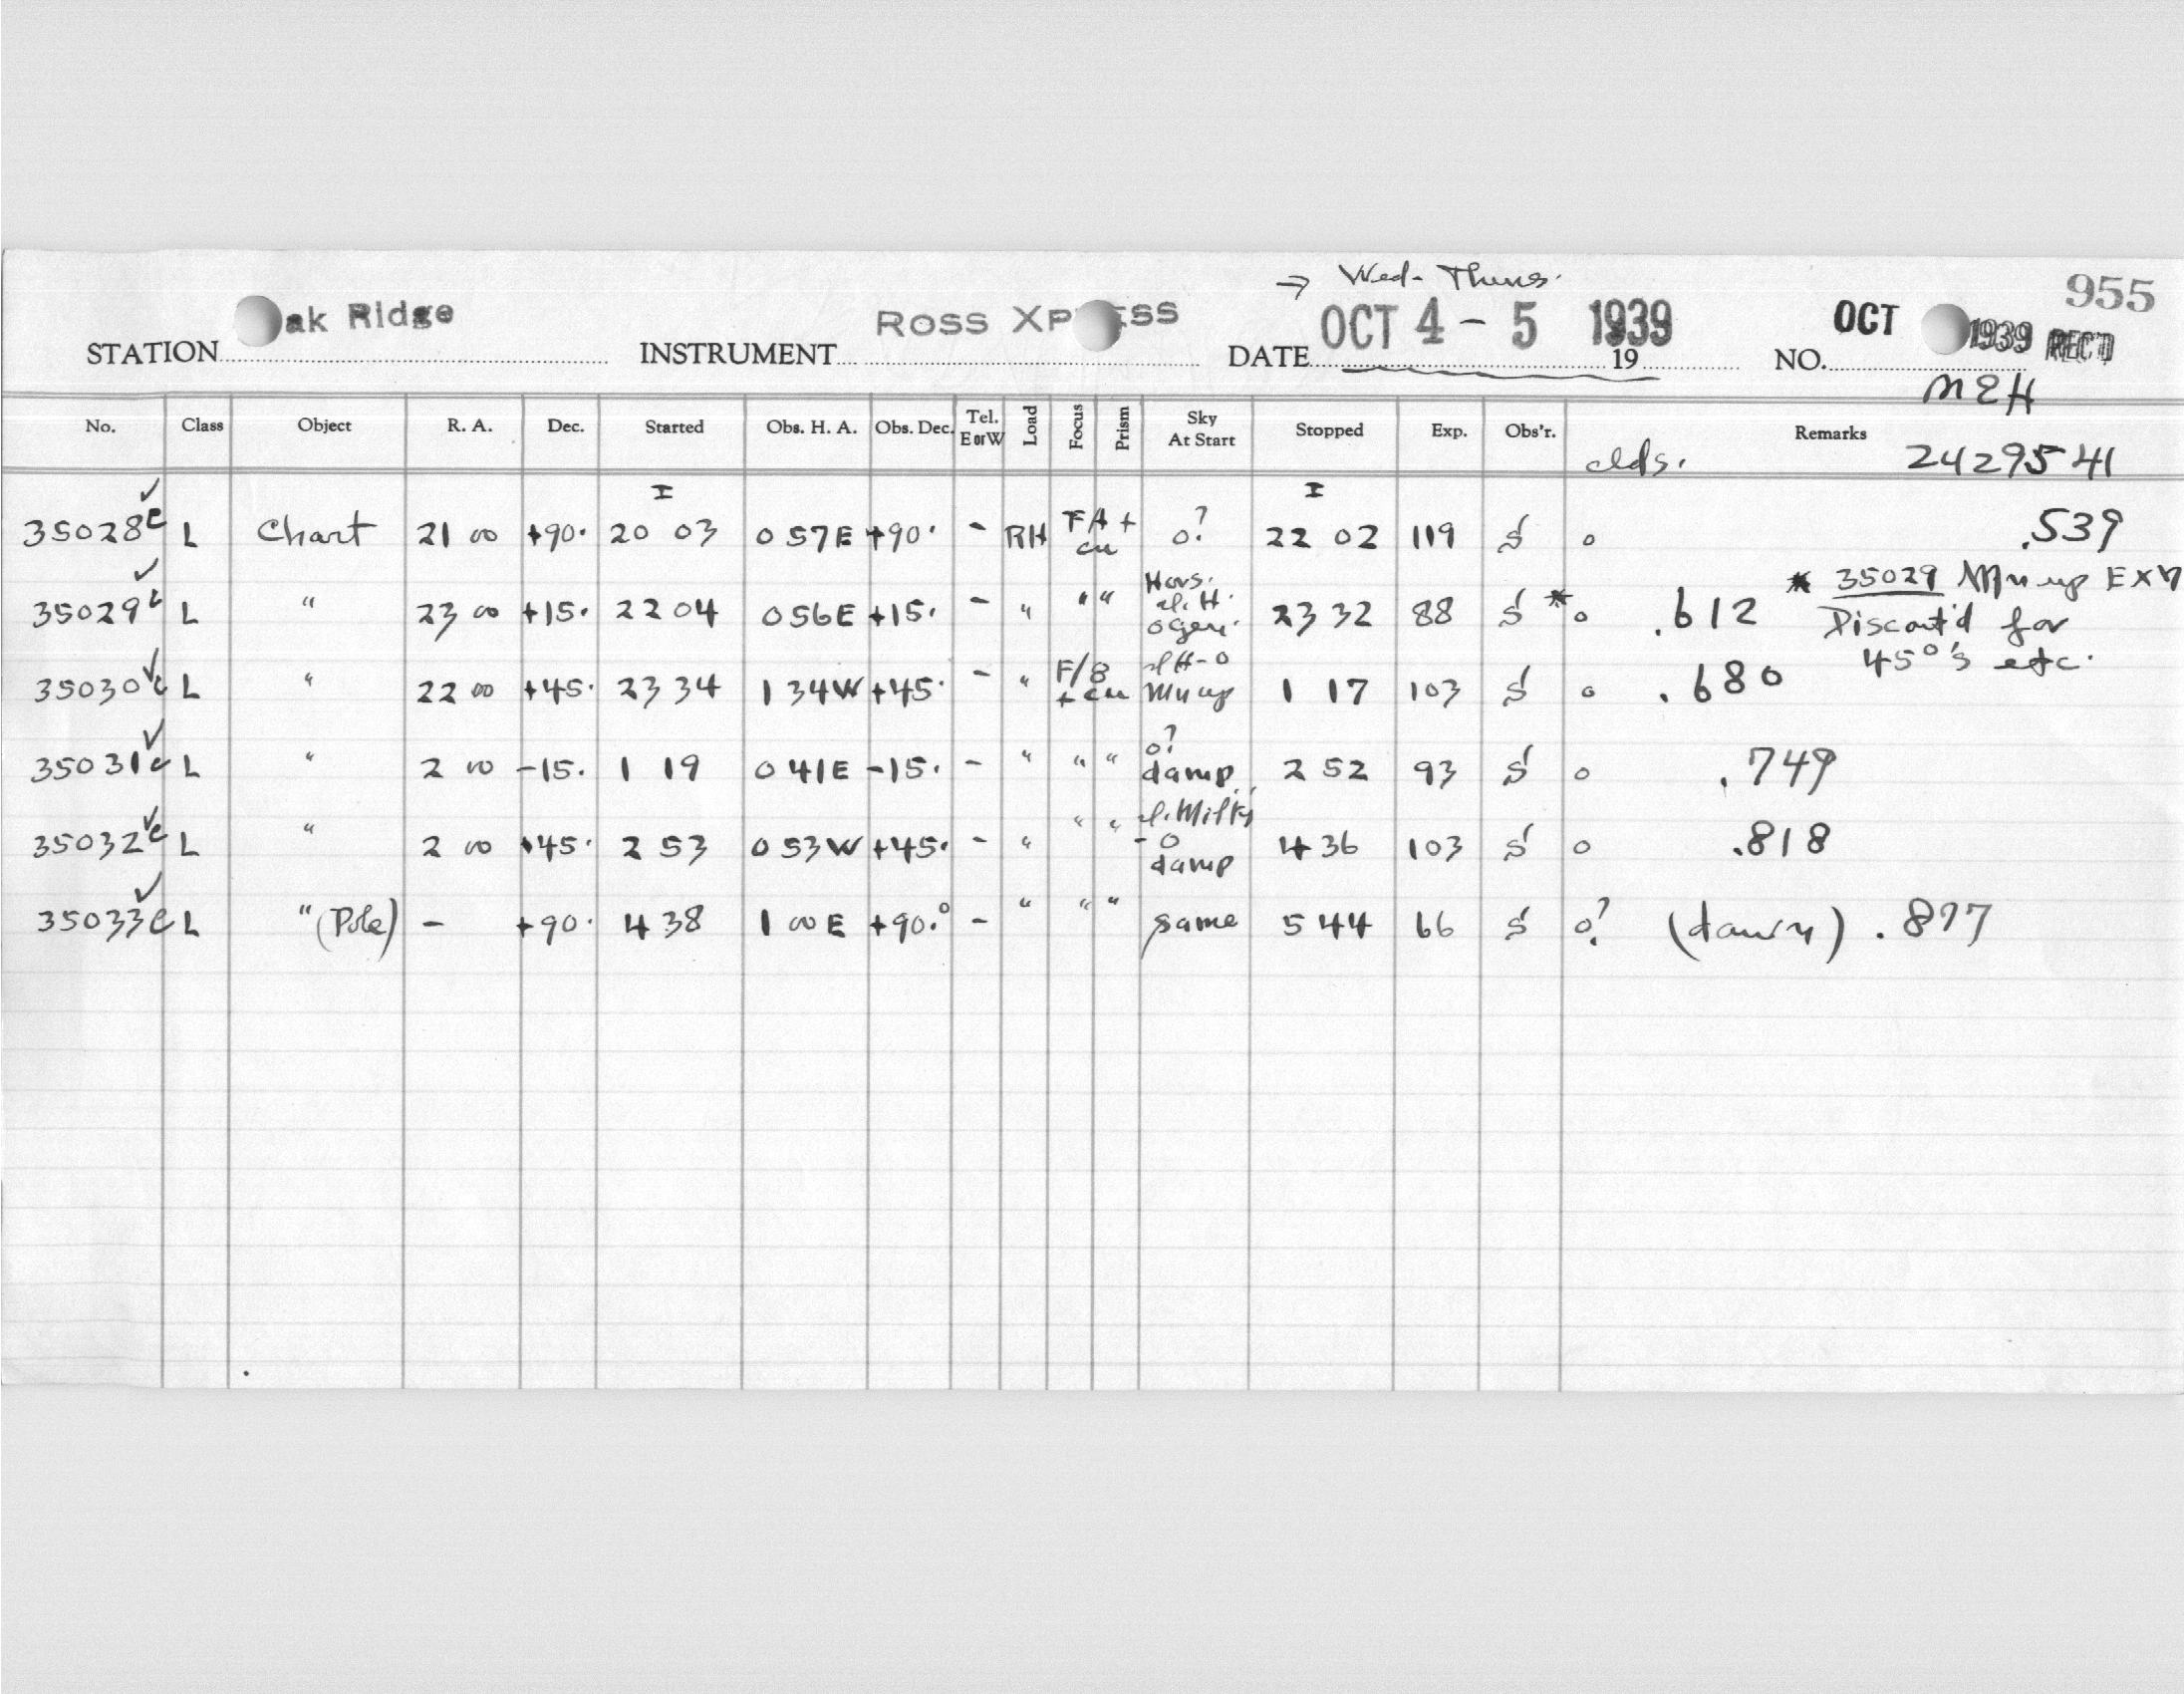 → Wed - Thurs.
955
STATION ak Ridge INSTRUMENT ROSS XP ESS DATE OCT 4 - 5 1939 19 NO. OCT 1939 REC'D
MEH
No. Class Object R. A. Dec. Started Obs. H. A. Obs. Dec. Tel. E or W Load Focus Prism Sky At Start Stopped Exp. Obs'r. Remarks
clds. 2429541
I I
35028c L Chart 21 00 +90. 20 03 0 57E +90. - RH FA + cu o? 22 02 119 S o .539
35029c L " 23 00 +15. 22 04 0 56E +15. - " " " Hors. sl. H. o gen. 23 32 88 S * o .612 * 35029 Mn up EXP Discont'd for 45°'s etc.
35030c L " 22 00 +45. 23 34 1 34W +45. - " F/8 + cu sl H - o Mn up 1 17 103 S o .680
35031c L " 2 00 -15. 1 19 0 41E -15. - " " " o? damp 2 52 93 S o .749
35032c L " 2 00 +45. 2 53 0 53W +45. - " " " sl. Milky - o damp 4 36 103 S o .818
35033c L " (Pole) - +90. 4 38 1 00 E +90.° - " " " same 5 44 66 S o? (dawn) .877